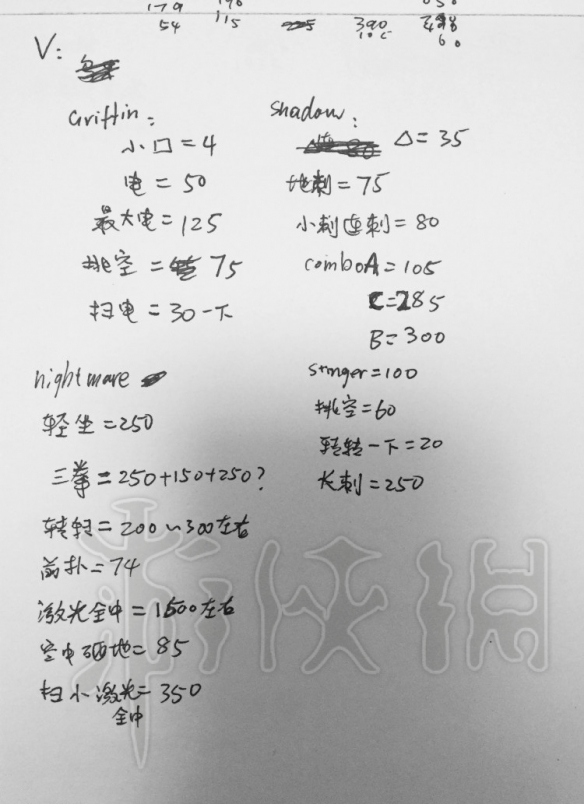 179
54
115
390
60
V:
Griffin:
小口=4
电=50
最大电=125
挑空=75
扫电=30一下
shadow:
△=35
地刺=75
小刺连刺=80
comboA=105
C=285
B=300
stinger=100
挑空=60
转转一下=20
长刺=250
nightmare
轻坐=250
三拳=250+150+250?
转转=200~300左右
前扑=74
激光全中=1500左右
空中砸地=85
扫小激光=350
全中
游侠网